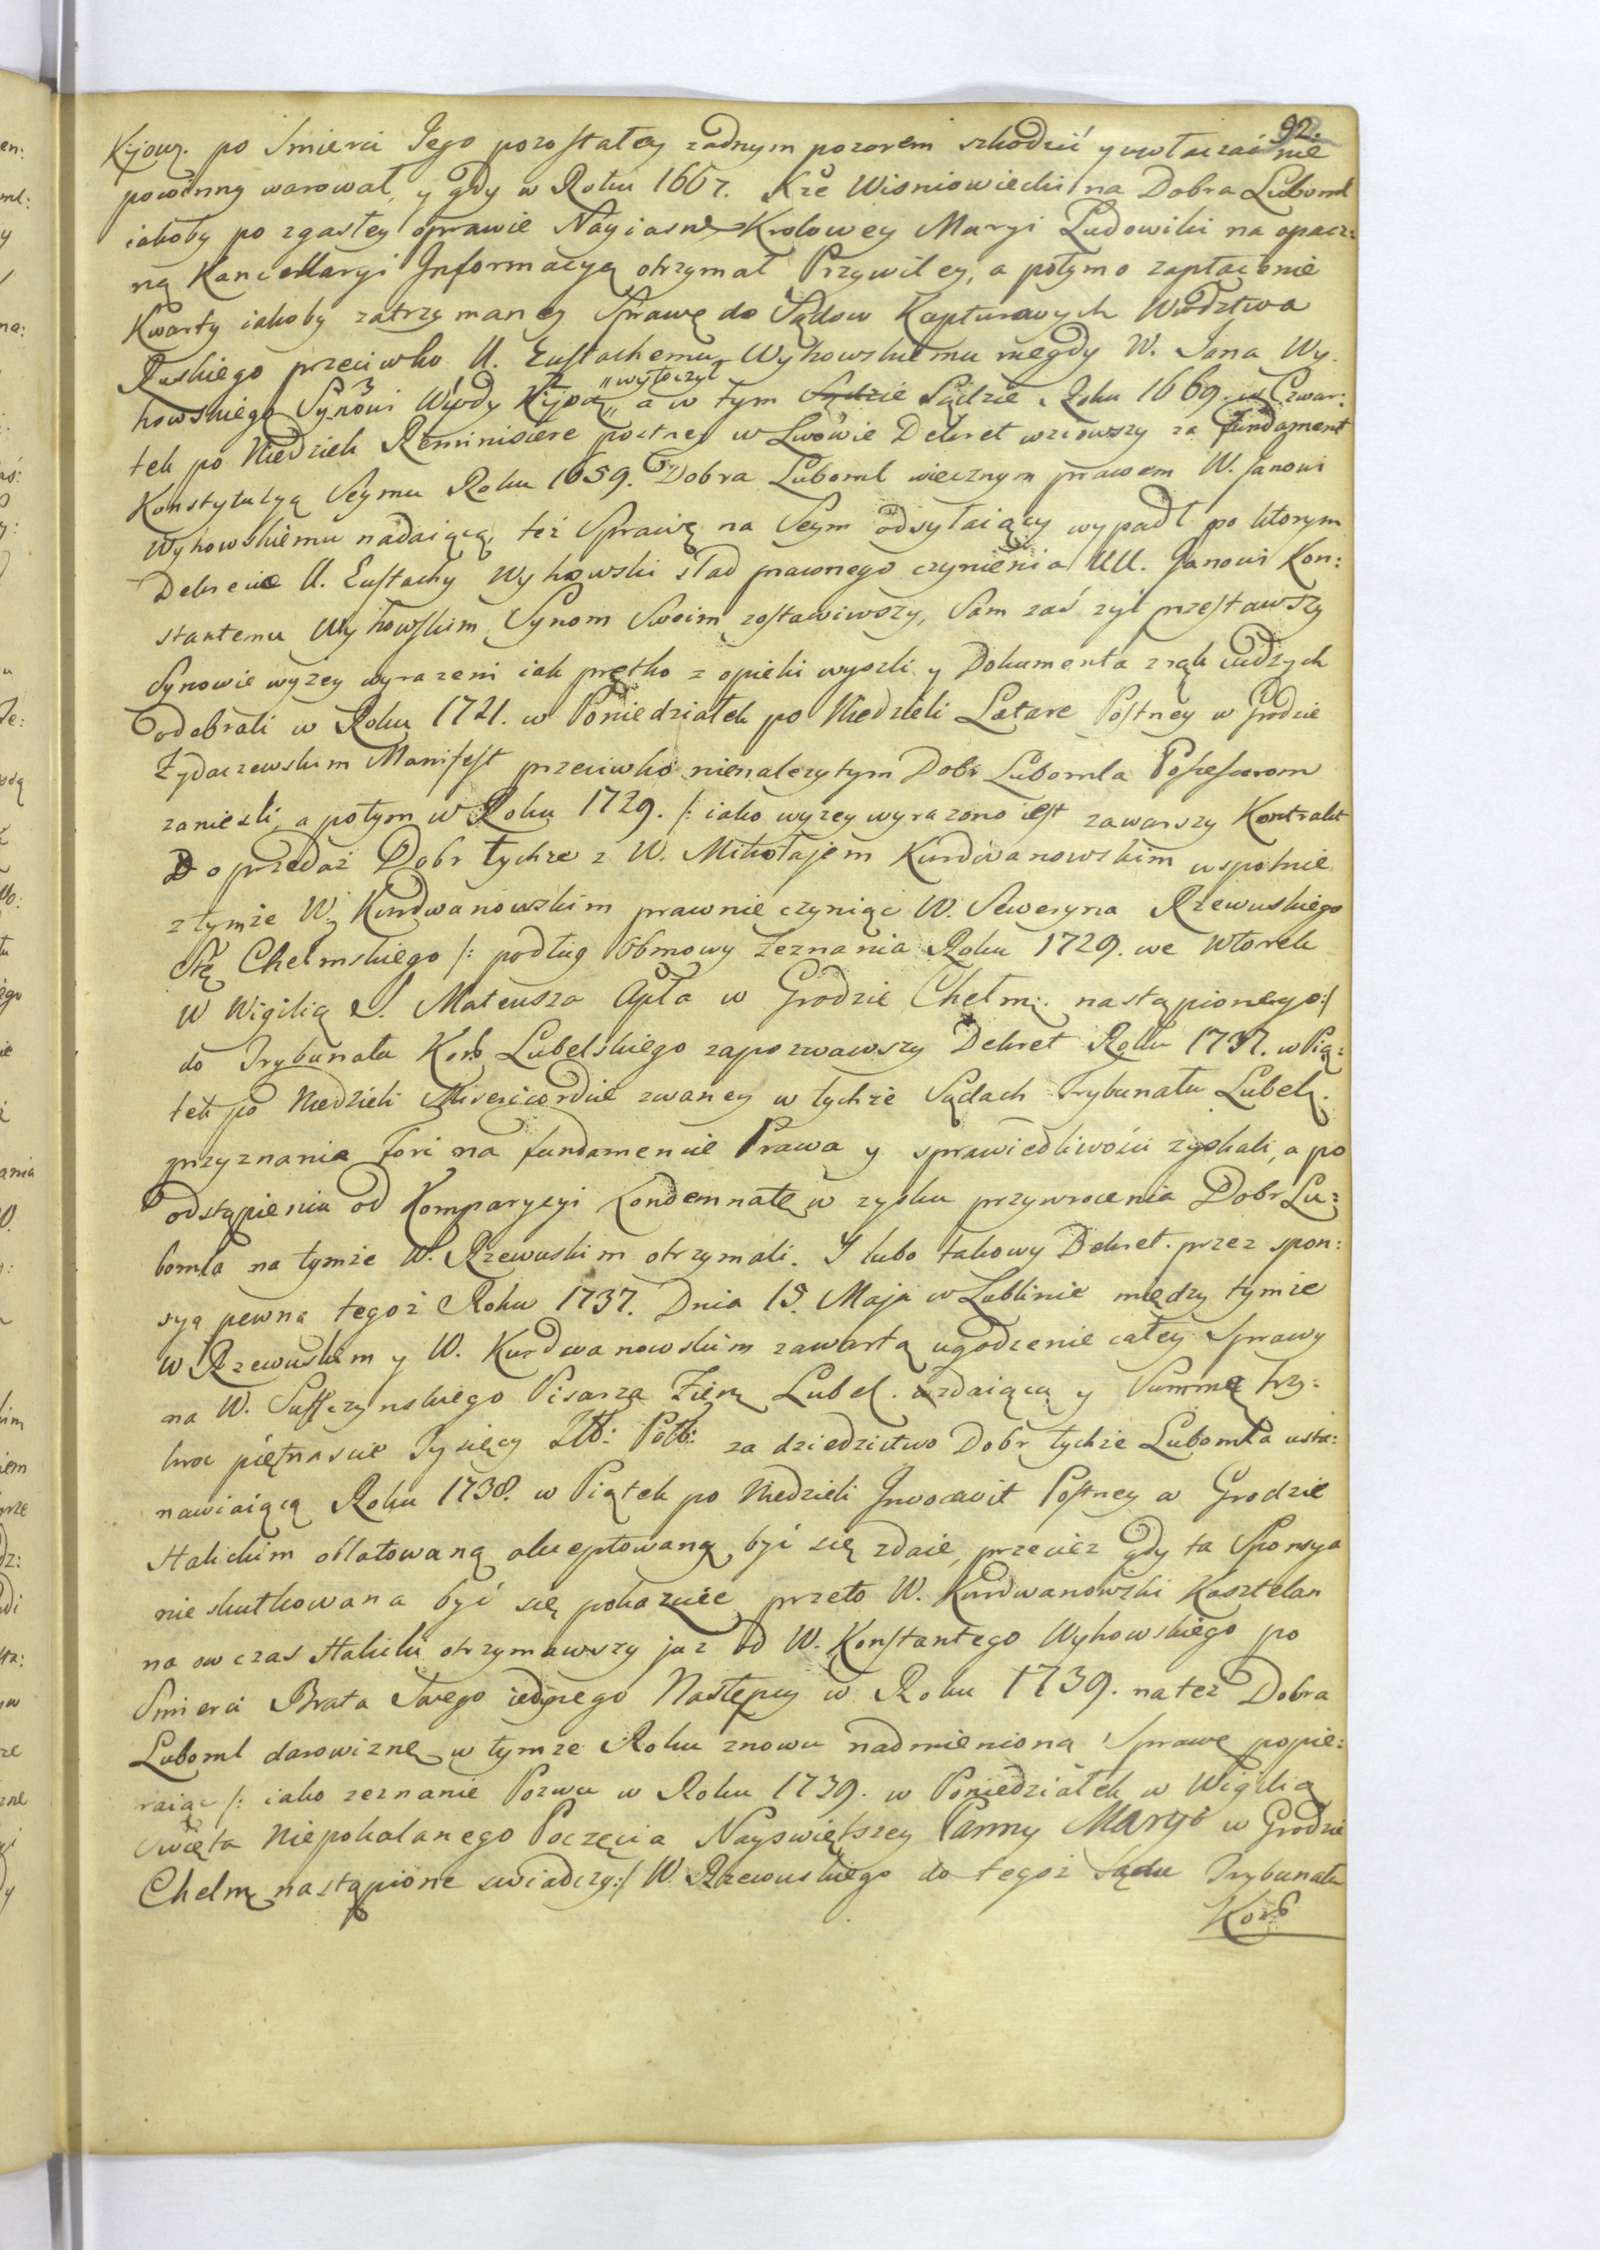 92.
Kijow. po Smierci Jego pozostałey zadnym pozorem szkodzić y uwłaczać nie
powinny warował, y gdy w Roku 1667. Xże Wisniowiecki na Dobra Luboml
iakoby po zgasłey oprawie Nayiasn. Krolowey Maryi Ludowiki na opacz:
ną Kancellaryi Informacyą otrzymał Przywiley, a potym o zapłacenie
Kwarty iakoby zatrzymaney Sprawę do Sądow Kapturowych Wdztwa
Ruskiego przeciwko U. Eustachemu Wyhowskiemu niegdy W. Jana Wy-
howskiego Synowi Wdy Kijow. „wytoczył„ a w tym Sądzie Roku 1669. w Czwar:
tek po Niedzieli Reminiscere postney w Lwowie Dekret wziowszy za fundament
Konstytucyą Seymu Roku 1659. Dobra Luboml wiecznym prawem W. Janowi
Wyhowskiemu nadaiącą, też Sprawę na Seym odsyłaiący wypadł po ktorym
Dekrecie U. Eustachy Wyhowski slad prawnego czynienia UU. Janowi Kon:
stantemu Wyhowskim Synom Swoim zostawiwszy, Sam zaś żyć przestawszy
Synowie wyżey wyrazeni iak prętko z opieki wyszli y Dokumenta z rąk cudzych
odebrali w Roku 1721. w Poniedziałek po Niedzieli Lætare Postney w Grodzie
Żydaczewskim Manifest przeciwko nienalezytym Dobr Lubomla Possessorom
zanieśli, a potym w Roku 1729. /: iako wyzey wyrazono iest zawarszy Kontrakt
o przedaż Dobr tychże z W. Mikołajem Kurdwanowskim wspolnie
z tymże W. Kurdwanowskim prawnie czyniąc W. Seweryna Rzewuskiego
Stę Chełmskiego /: podług obmowy Zeznania Roku 1729. we Wtorek
W Wigilią S. Mateusza Apła w Grodzie Chełm. nastąpionego :/
do Trybunału Kor. Lubelskiego zapozwawszy Dekret Roku 1737. w Pią:
tek po Niedzieli Misericordiæ zwaney w tychże Sądach Trybunału Lubel.
przyznania Fori na fundamencie Prawa y sprawiedliwości zyskali, a po
odstąpieniu od Komparycyi Kondemnatę w zysku przywrocenia Dobr Lu:
bomla na tymże W. Rzewuskim otrzymali. I lubo takowy Dekret przez spon:
syą pewną tegoż Roku 1737. Dnia 15. Maja w Lublinie między tymże
W Rzewuskim y W. Kurdwanowskim zawartą ugodzenie całey Sprawy
na W. Suffczynskiego Pisarza Ziem. Lubel. zdaiącą y Summę trzy:
kroć piętnascie Tysięcy Złł: Poll: za dziedzictwo Dobr tychże Lubomla usta:
nawiaiącą Roku 1738. w Piątek po Niedzieli Invocavit Postney w Grodzie
Halickim oblatowaną akceptowaną być się zdaie, przecież gdy ta Sponsya
nieskutkowana być się pokazuie przeto W. Kurdwanowski Kasztelan
na ow czas Halicki otrzymawszy już od W. Konstantego Wyhowskiego po
Smierci Brata Swego iedynego Następcy w Roku 1739. na też Dobra
Luboml darowiznę w tymże Roku znowu nadmienioną Sprawę popie:
raiąc /: iako zeznanie Pozwu w Roku 1739. w Poniedziałek w Wigilią
Swięta Niepokalanego Poczęcia Nayswiętszey Panny Maryi w Grodzie
Chełm. nastąpione swiadczy :/ W. Rzewuskiego do tegoż Sądu Trybunału
Kor.